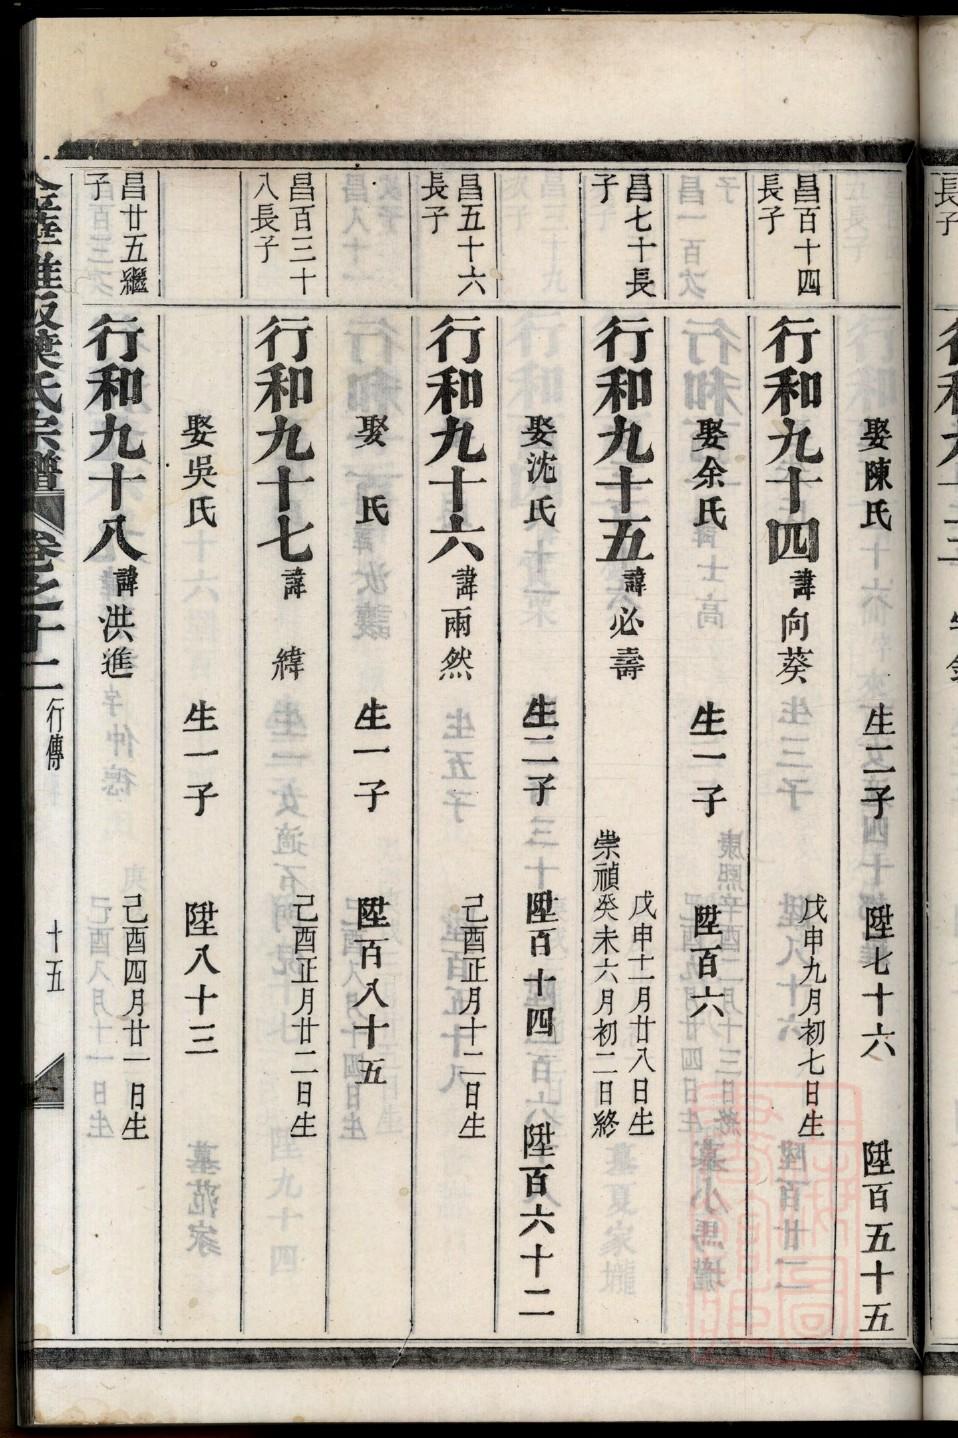 娶陳氏　生二子　陞七十六　陞百五十五
昌百十四長子
行和九十四諱向葵　戊申九月初七日生
娶余氏　生一子　陞百六
昌七十長子
行和九十五諱必壽　戊申十二月廿八日生
崇禎癸未六月初二日終
娶沈氏　生二子　陞百十四　陞百六十二
昌五十六長子
行和九十六諱兩然　己酉正月十二日生
娶　氏　生一子　陞百八十五
昌百三十八長子
行和九十七諱　緯　己酉正月廿二日生
娶吳氏　生一子　陞八十三
昌廿五繼子
行和九十八諱洪進　己酉四月廿一日生
氏宗譜　卷之十二　行傳　十五
長子